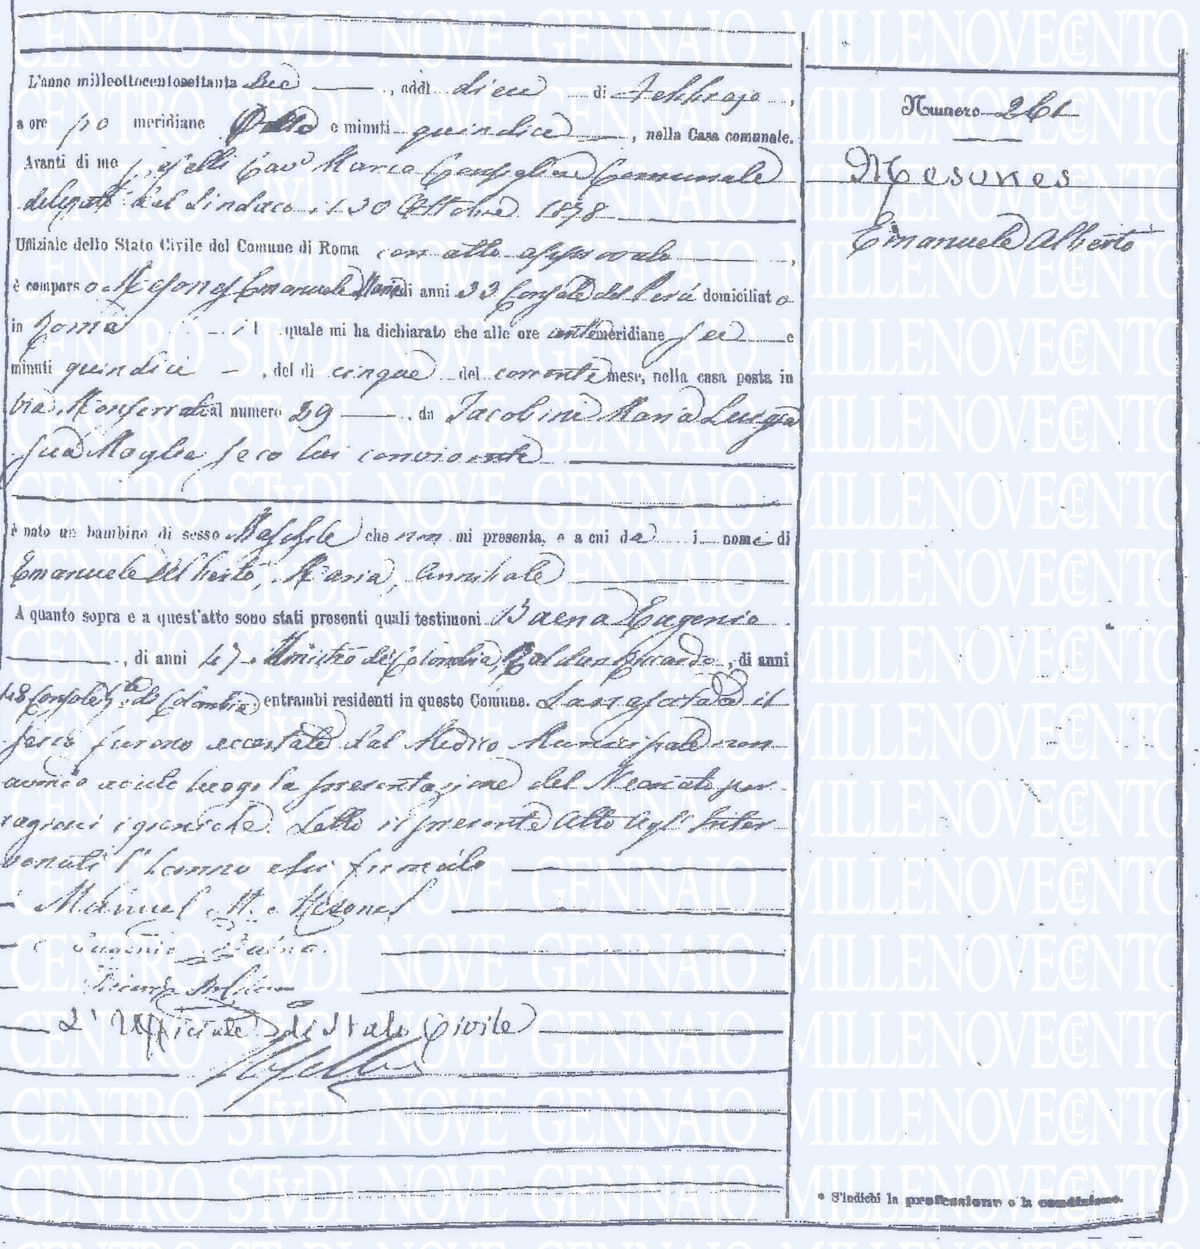 L'anno milleottocentosettanta , addì dieci di Febbrajo ,
a ore po meridiane e minuti quindici , nella Casa comunale.
Avanti di me Cav Marco Consigliere Comunale
delegato dal Sindaco il 20 Ottobre 1878
Uffiziale dello Stato Civile del Comune di Roma con atto
è comparso Mesones Emanuele di anni 33 Console del Perù domiciliato
in Roma il quale mi ha dichiarato che alle ore antemeridiane sei e
minuti quindici , del dì cinque del corrente mese, nella casa posta in
via Monserrato al numero 29 , da Jacobini Maria Luigia
sua Moglie seco lui convivente
è nato un bambino di sesso Maschile che non mi presenta, e a cui da i nomi di
Emanuele Alberto, Maria, Annibale
A quanto sopra e a quest'atto sono stati presenti quali testimoni Baena Eugenio
, di anni 47 Ministro di Colombia, Riccardo , di anni
48 Console di Colombia entrambi residenti in questo Comune. La nascita ed il
sesso furono accertate dal Medico Municipale non
avendo avuto luogo la presentazione del Neonato per
ragioni igieniche. Letto il presente Atto agli Inter-
venuti l'hanno firmato
Manuel M. Mesones
Eugenio Baena
L'Uffiziale di Stato Civile
Numero 261
Mesones
Emanuele Alberto
* S'indichi la professione o la condizione.
CENTRO STVDI NOVE GENNAIO MILLENOVECENTO